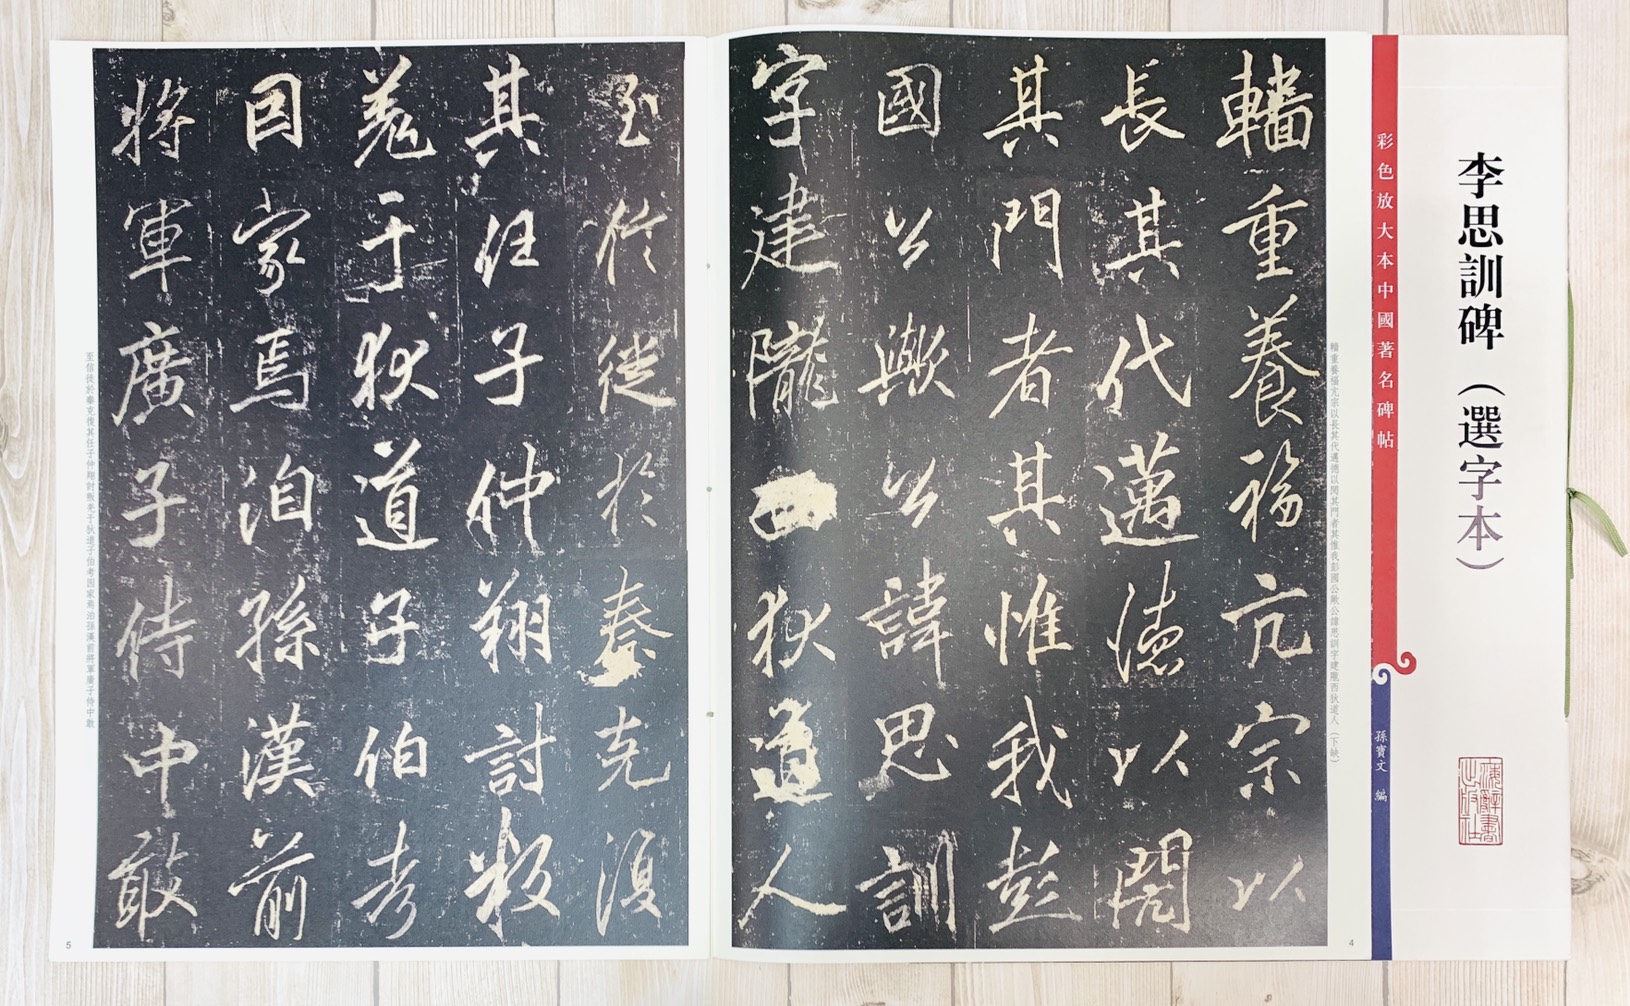 李思訓碑（選字本）
上海辭書出版社
彩色放大本中國著名碑帖
孫寶文 編
轖重養福亢宗以長其代邁德以閎其門者其惟我彭國公歟公諱思訓字建隴西狄道人（下缺）
轖重養福亢宗以
長其代邁德以閎
其門者其惟我彭
國公歟公諱思訓
字建隴西狄道人
4
至信徙於秦克復
其任子仲翔討叛
羌于狄道子伯考
因家焉洎孫漢前
將軍廣子侍中敢
至信徙於秦克復其任子仲翔討叛羌于狄道子伯考因家焉洎孫漢前將軍廣子侍中敢
5